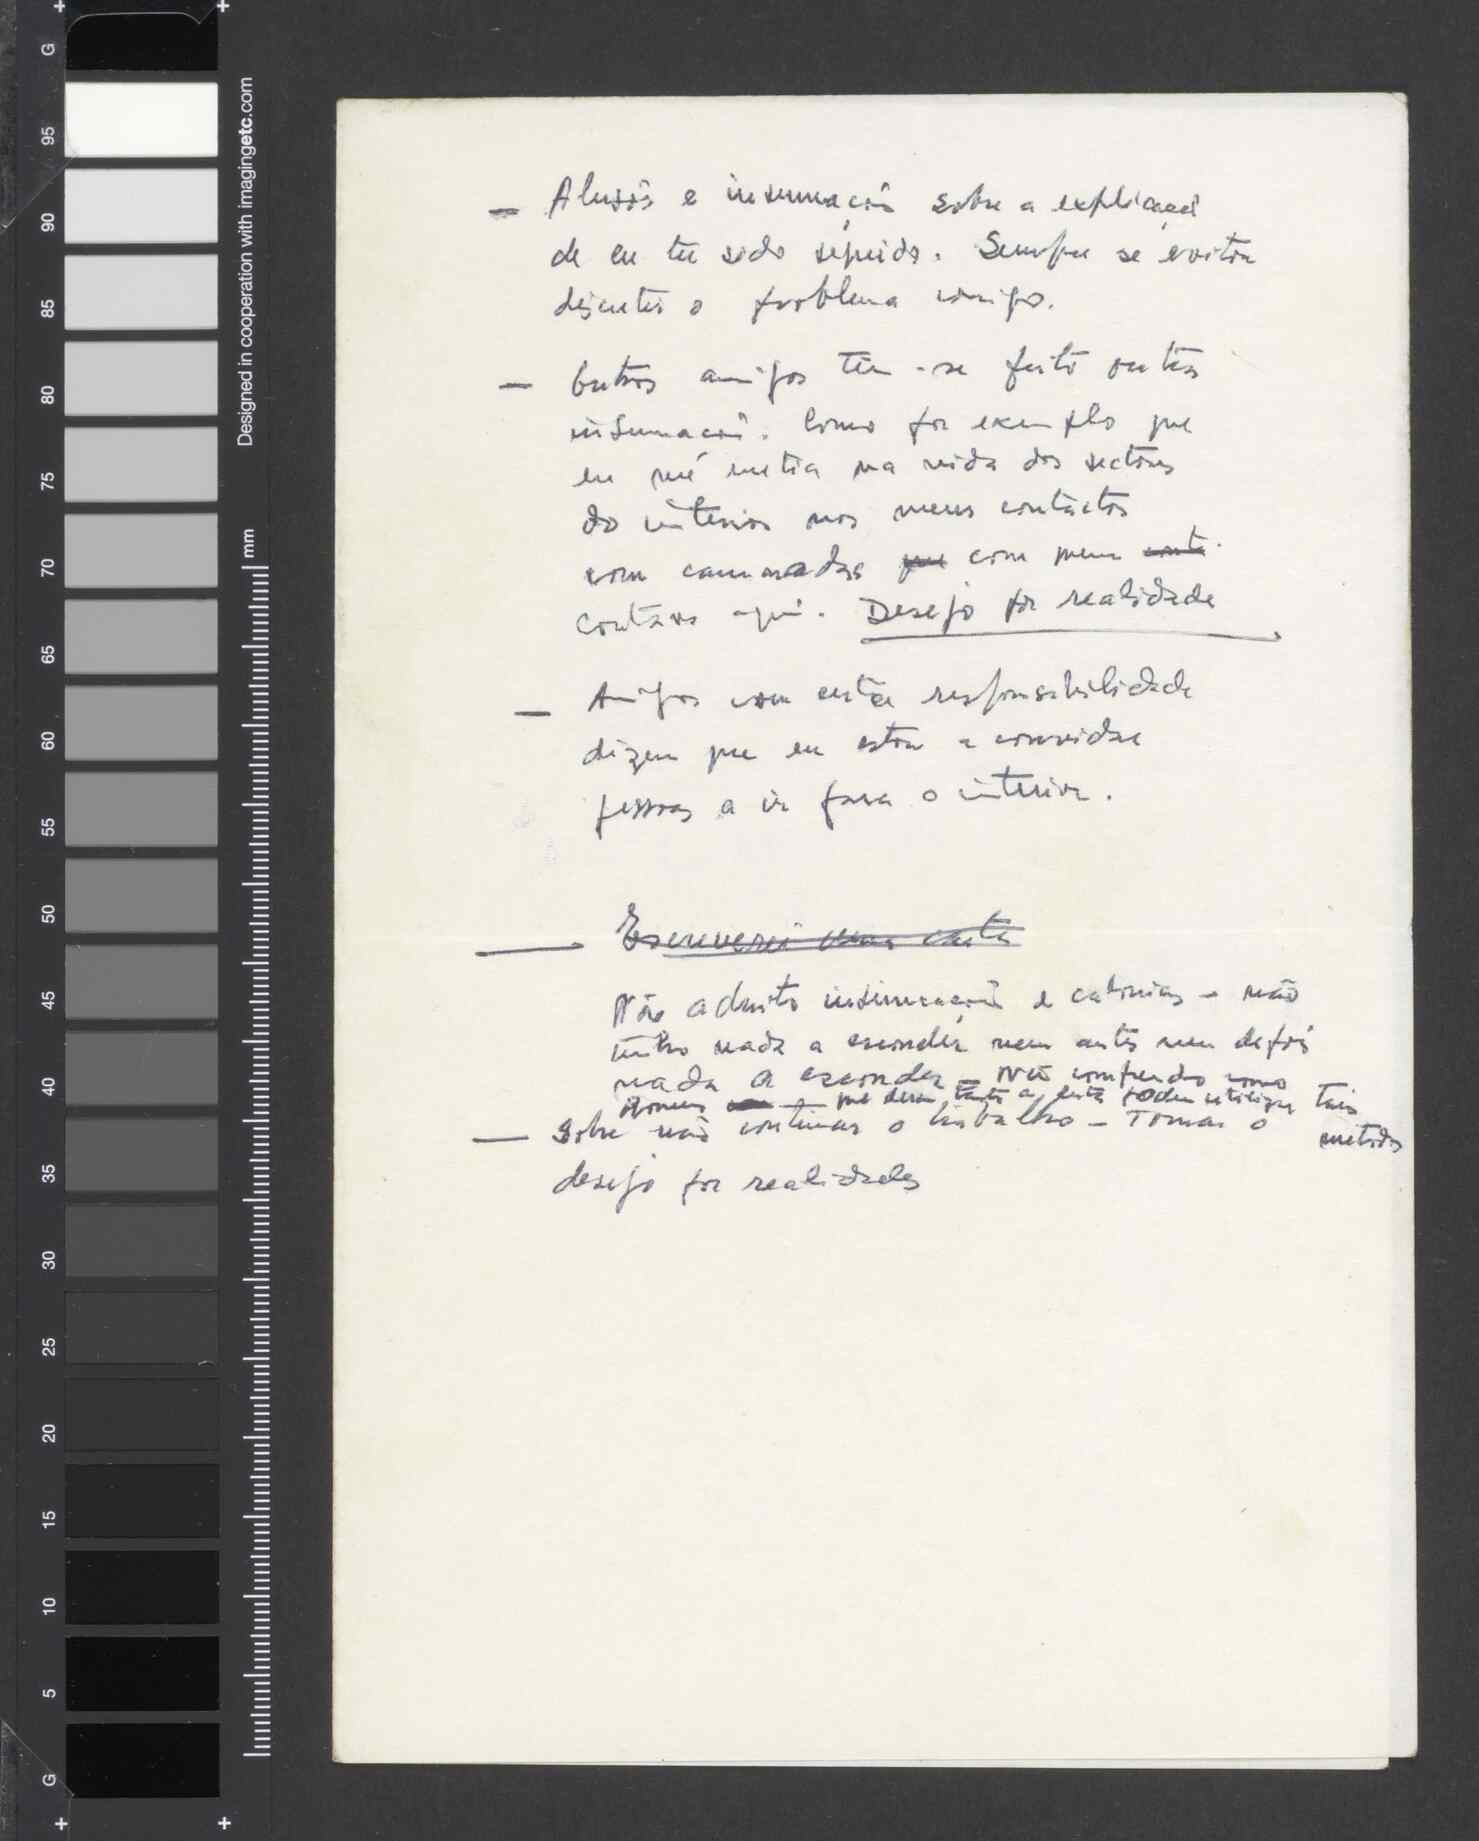 – Alusões e insinuações sobre a explicação
de eu ter sido seguido. Sempre se evitou
discutir o problema comigo.
– Outros amigos têm-se feito outras
insinuações. Como por exemplo que
eu me metia na vida dos sectores
do interior nos meus contactos
com camaradas que com quem cont.
contava aqui. Desejo por realidade
– Amigos com certa responsabilidade
dizem que eu estou a convidar
pessoas a ir para o interior.
— Escreverei uma carta
Não admito insinuações e calúnias – não
tenho nada a esconder nem antes nem depois
nada a esconder – não compreendo como
Homens que deram tanto a podem utilizar tais
métodos
— Sobre não continuar o trabalho – Tomar o
desejo por realidades
G
95
90
85
80
75
70
65
60
55
50
45
40
35
30
25
20
15
10
5
G
Designed in cooperation with imagingetc.com
mm